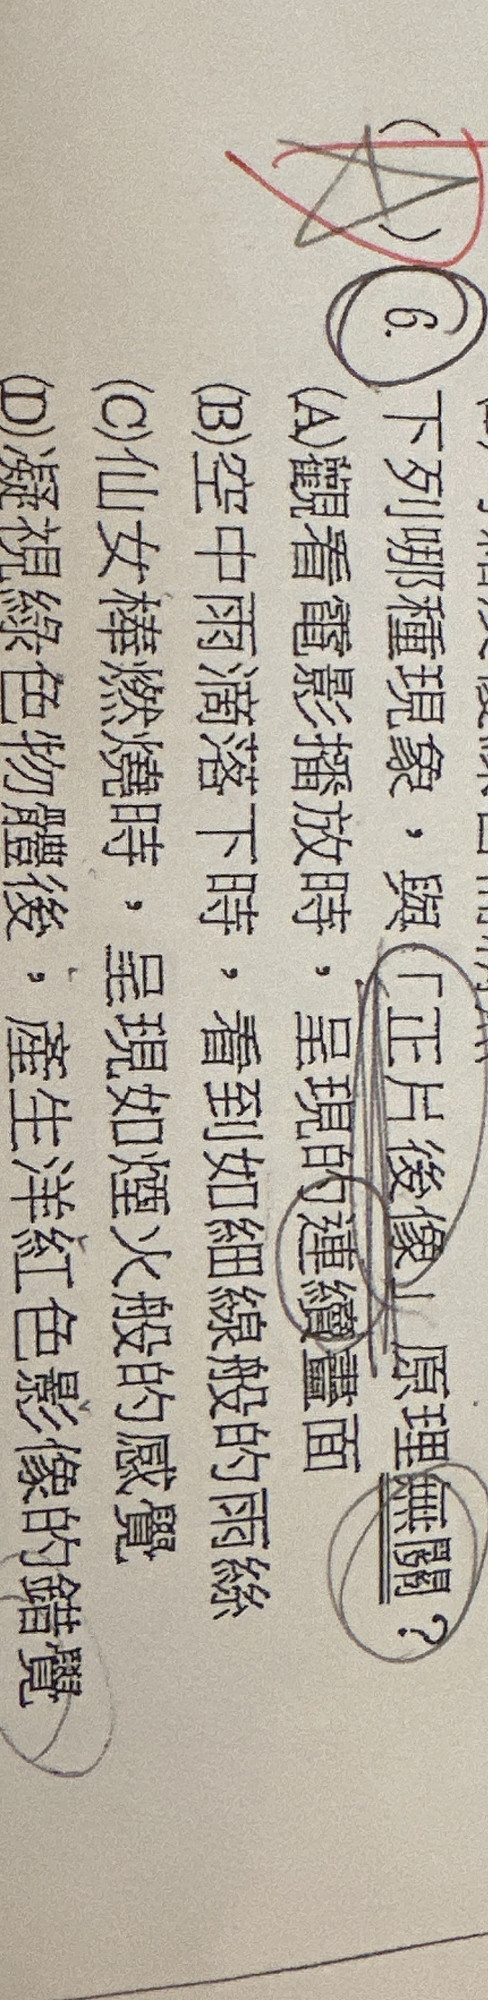 ( )6. 下列哪種現象，與「正片後像」原理無關？
(A)觀看電影播放時，呈現的連續畫面
(B)空中雨滴落下時，看到如細線般的雨絲
(C)仙女棒燃燒時，呈現如煙火般的感覺
(D)凝視綠色物體後，產生洋紅色影像的錯覺